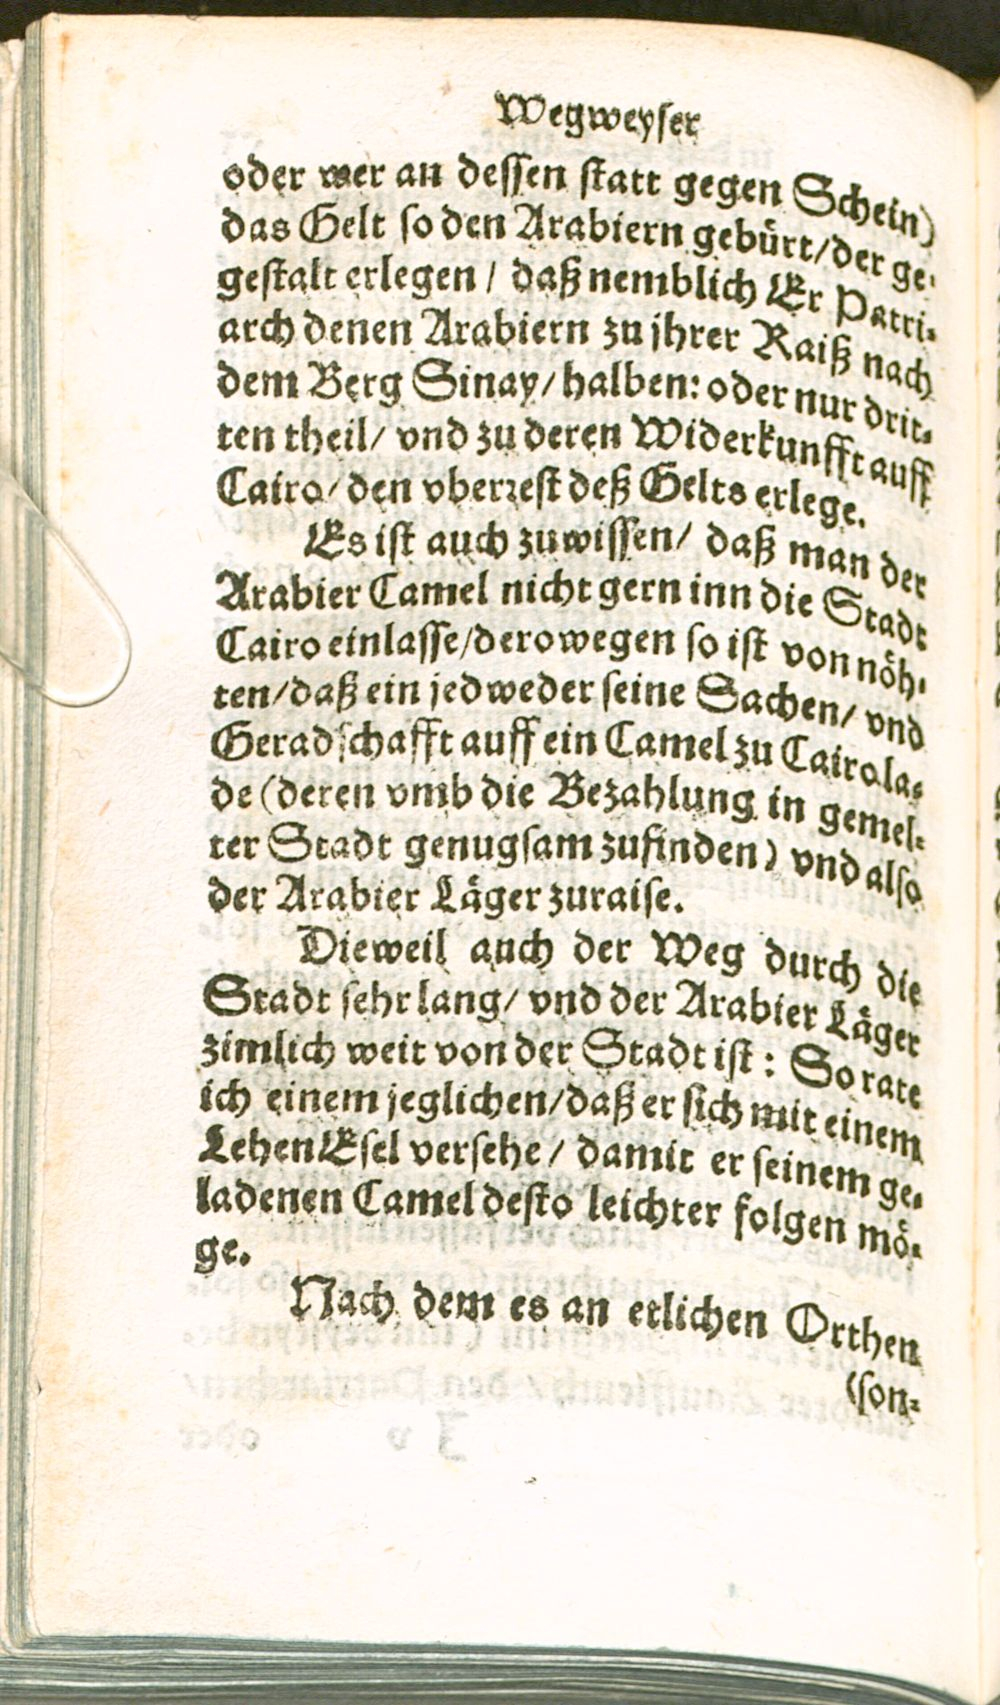 Wegweyser
oder wer an dessen statt gegen Schein)
das Gelt so den Arabiern gebürt/der ge-
gestalt erlegen / daß nemblich Er Patri-
arch denen Arabiern zu jhrer Raiß nach
dem Berg Sinay/ halben: oder nur drit-
ten theil/ vnd zu deren Widerkunfft auff
Cairo/ den vberrest deß Gelts erlege.
Es ist auch zuwissen/ daß man der
Arabier Camel nicht gern inn die Stadt
Cairo einlasse/derowegen so ist von nöh-
ten/daß ein jedweder seine Sachen/ vnd
Geradschafft auff ein Camel zu Cairo la-
de (deren vmb die Bezahlung in gemel-
ter Stadt genugsam zufinden) vnd also
der Arabier Läger zuraise.
Dieweil auch der Weg durch die
Stadt sehr lang/ vnd der Arabier Läger
zimlich weit von der Stadt ist: So rate
ich einem jeglichen/daß er sich mit einem
LehenEsel versehe / damit er seinem ge-
ladenen Camel desto leichter folgen mö-
ge.
Nach dem es an etlichen Orthen
(son-